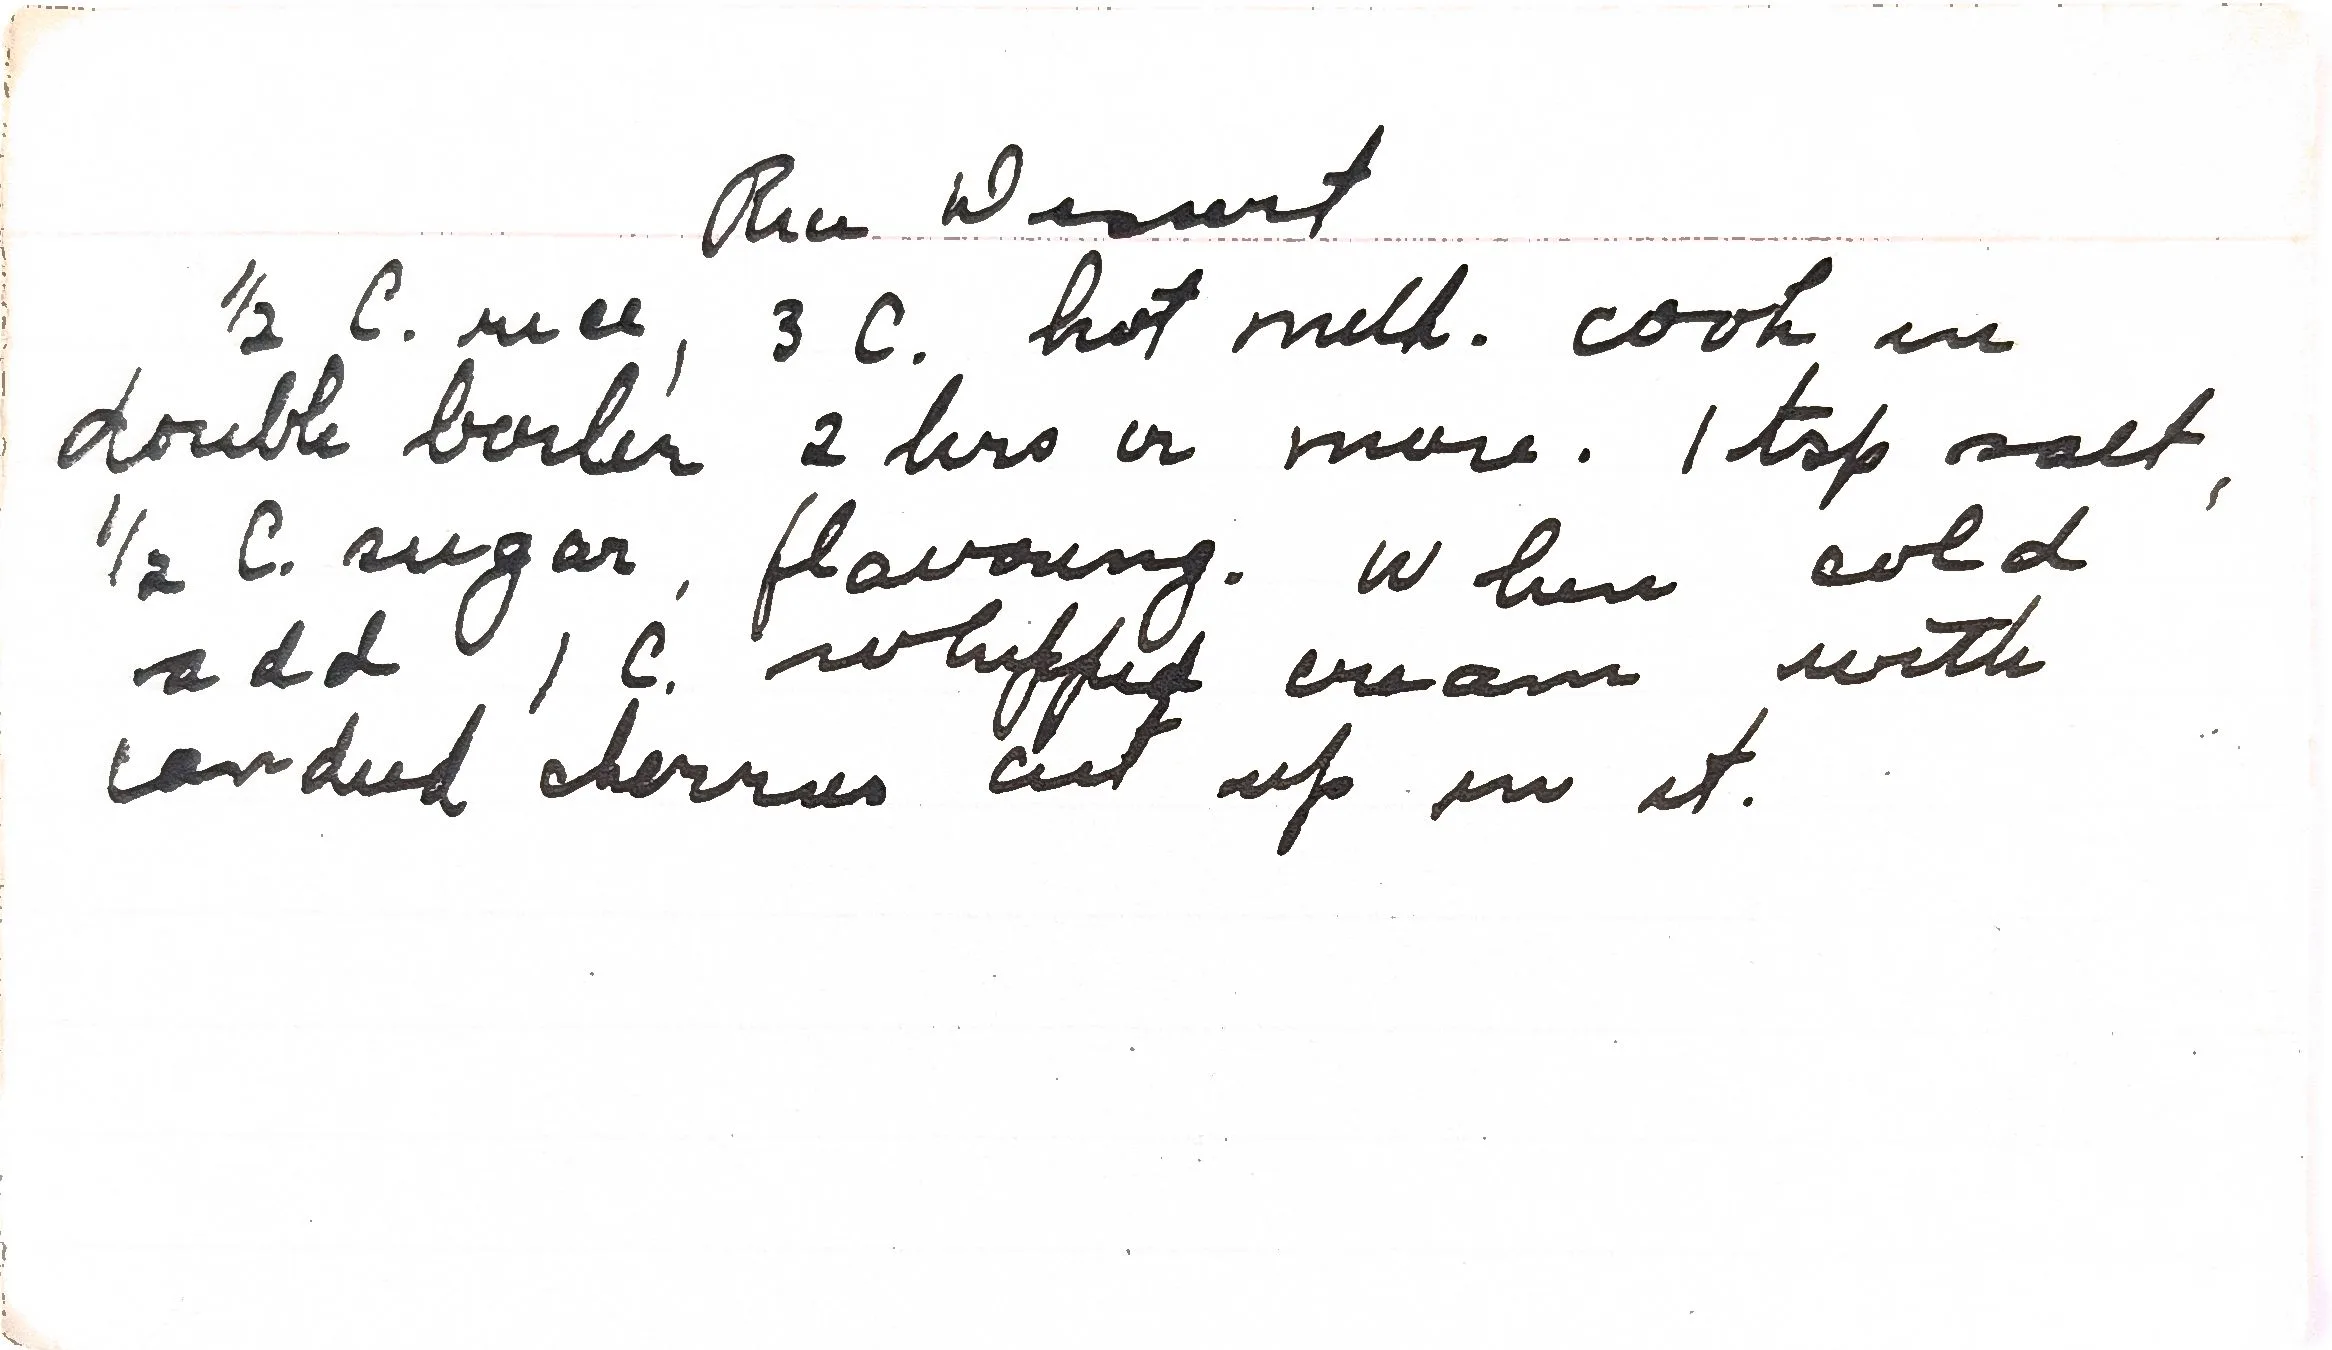 Rice Dessert
1/2 C. rice, 3 C. hot milk. cook in
double boiler 2 hrs or more. 1 tsp salt,
1/2 C. sugar, flavouring. When cold
add 1 C. whipped cream with
candied cherries cut up in it.